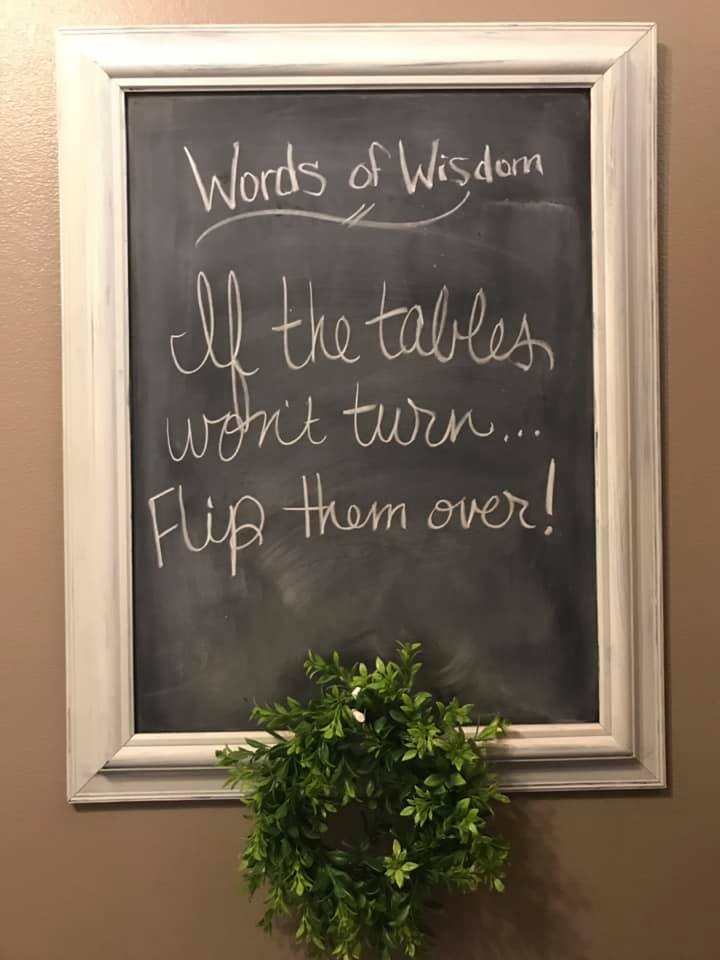 Words of Wisdom
If the tables
won't turn...
Flip them over!